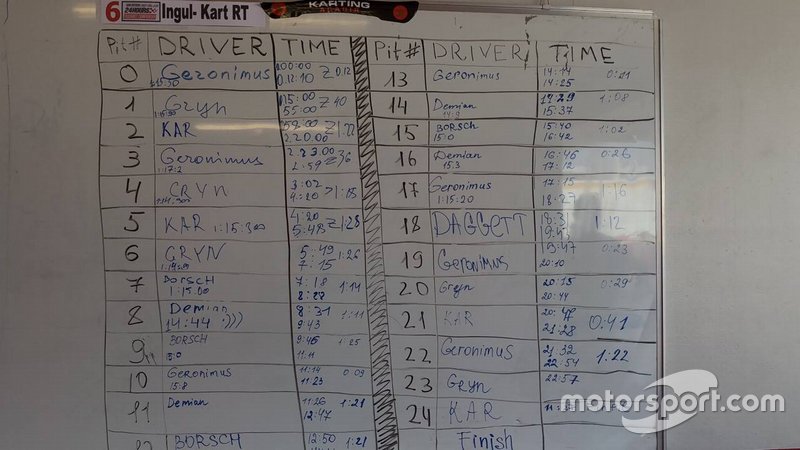 6 24HOURS Ingul- Kart RT
KARTING
Pit# DRIVER TIME
0 Geronimus 0.12:10 0.12
1 Gryn 55:00
2 KAR 2.20.00
3 Geronimus 2.23.00
1:17:2 2:59
4 GRYN 3:02
4:20
5 KAR 1:15:300 4:20
5:48 1:28
6 GRYN 5:49 1:26
7:15
7 BORSCH 7:18 1:14
1:15.00 8:27
8 Demian 8:31 1:11
14:44 :))) 9:43
9 BORSCH 9:46 1:25
11:11
10 Geronimus 11:14 0:09
15:8 11:23
11 Demian 11:26 1:21
12:47
BORSCH 12:50 1:21
Pit# DRIVER TIME
13 Geronimus 14:14 0:11
14:25
14 Demian 14:29 1:08
15:37
15 BORSCH 15:40 1:02
15:0 16:42
16 Demian 16:46 0:26
15.3 17:12
17 Geronimus 17:15 1:16
1:15:20
18 DAGGETT 18:31 1:12
19 Geronimus 19:47 0:23
20:10
20 Gryn 20:15 0:29
20:44
21 KAR 20:47 0:41
21:28
22 Geronimus 21:32 1:22
22:54
23 Gryn 22:57
24 KAR
Finish
motorsport.com